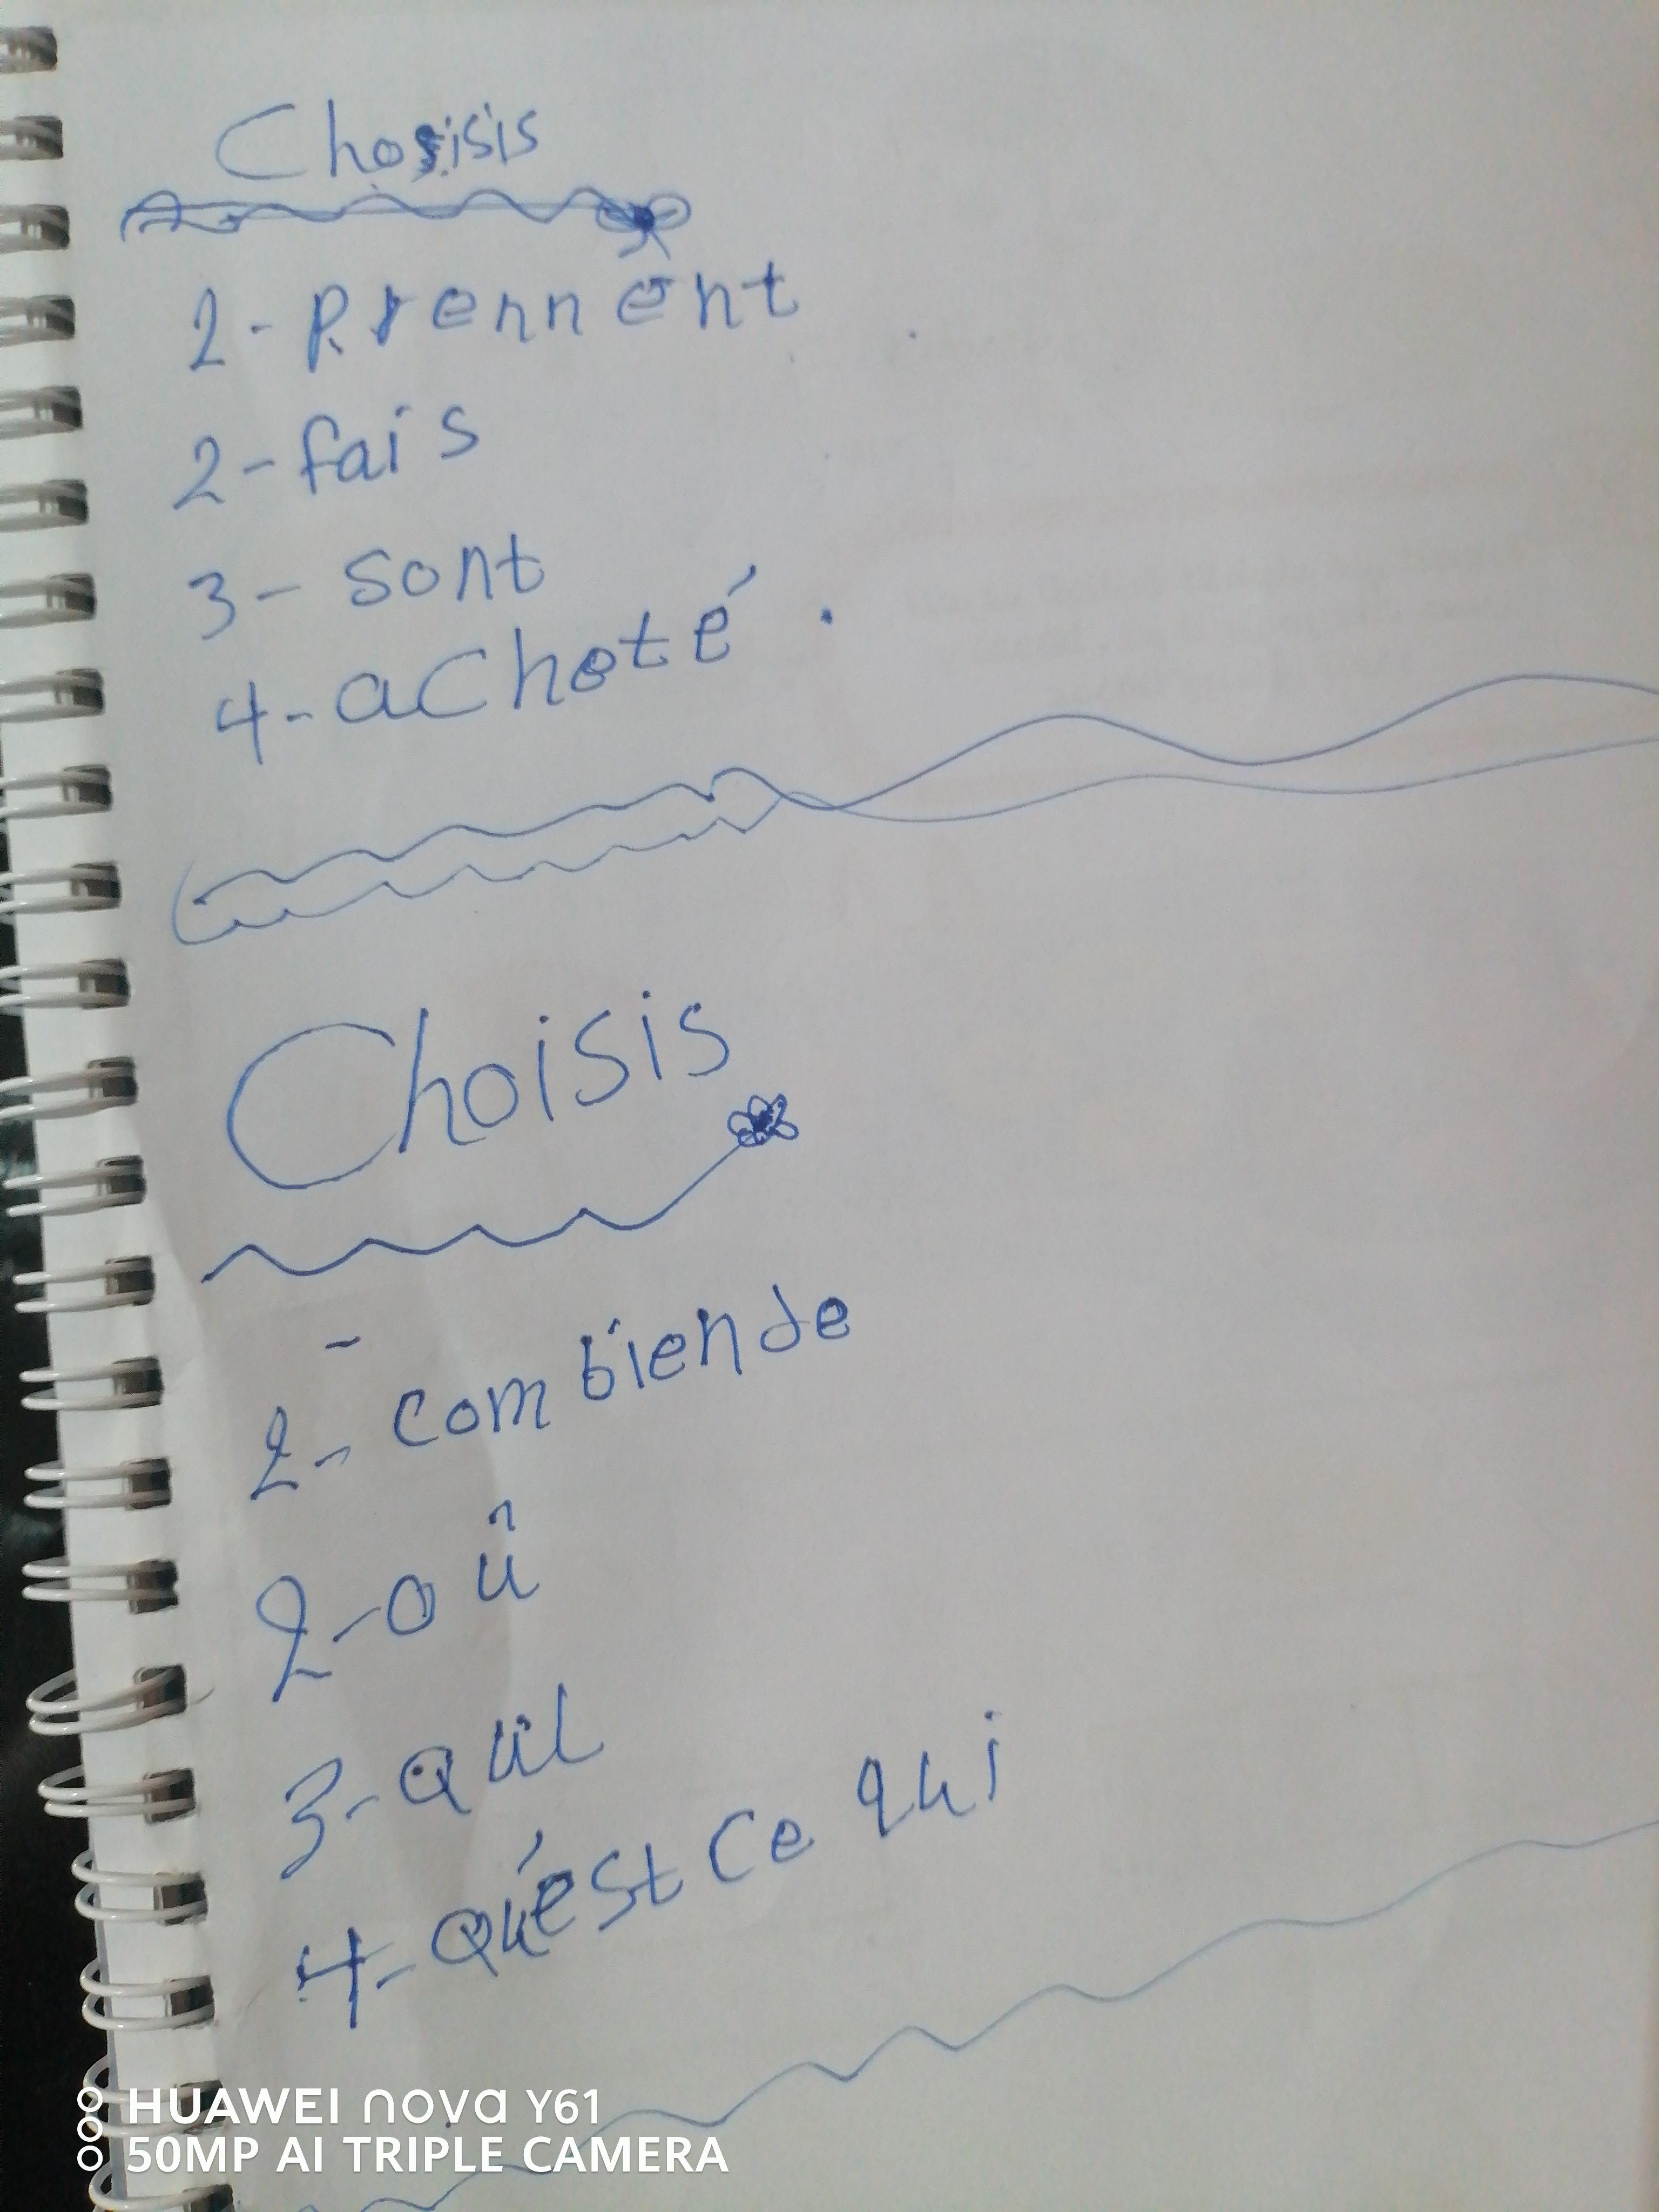 Choisis
2- prennent
2- fais
3- sont
4- acheté .
Choisis
2- combiende
2- où
3- qui
4- qu'est ce qui
HUAWEI nova Y61
50MP AI TRIPLE CAMERA